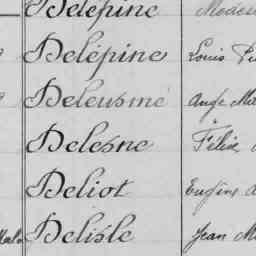 Delépine
Delépine Louis
Deleusme Ange
Delesne Félix
Deliot Eugène
Delisle Jean